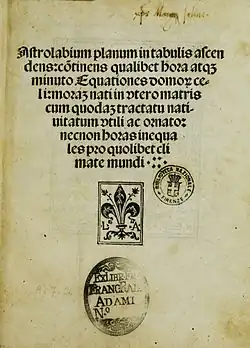 Astrolabium planum in tabulis ascen
dens: cõtinens qualibet hora atqꝫ
minuto Equationes domoꝝ ce
li: moraꝫ nati in vtero matris
cum quodaꝫ tractatu nati
uitatum vtili ac ornato:
necnon horas inequa
les pro quolibet cli
mate mundi
L A
BIBLIOTECA NAZIONALE
FIRENZE
EX LIBRIS
FRANC
ADAMI
N.º